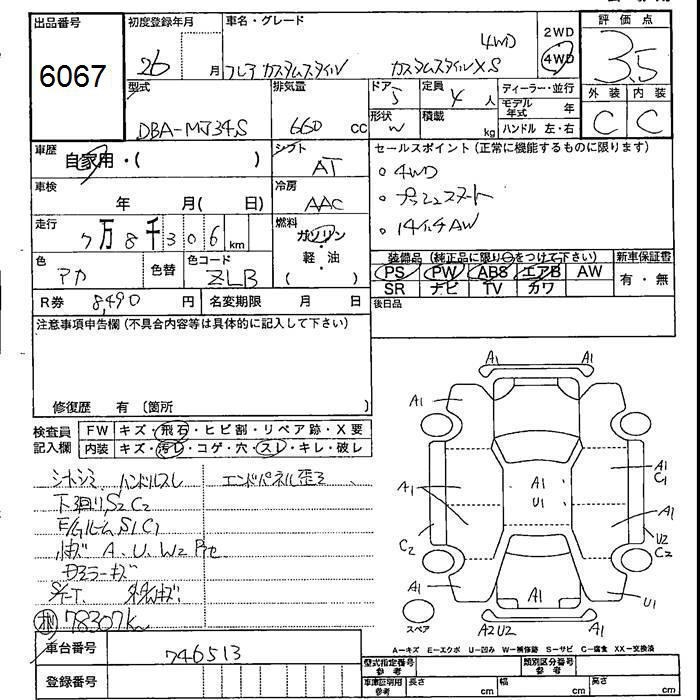 出品番号
6067
初度登録年月
26 月
車名・グレード
4WD
フレア カスタムスタイル カスタムスタイルXS
2WD
4WD
評価点
3.5
外装 内装
C C
型式
DBA-MJ34S
排気量
660 CC
ドア 5
形状
定員 4 人
積載 kg
ディーラー・並行
モデル年式 年
ハンドル 左・右
車歴
自家用・( )
シフト
AT
車検
年 月( 日)
冷房
AAC
走行
7万8千306 km
燃料
ガソリン
・
軽・油
( )
色
アカ
色替
色コード
ZLB
R券 8,490 円
名変期限 月 日
セールスポイント(正常に機能するものに限ります)
◦ 4WD
◦ プッシュスタート
◦ 14インチAW
装備品(純正品に限り○をつけて下さい)
PS PW ABS エアB AW
SR ナビ TV カワ
新車保証書
有・無
後日品
注意事項申告欄(不具合内容等は具体的に記入して下さい)
修復歴 有 〔箇所 〕
検査員記入欄
FW キズ・飛石・ヒビ割・リペア跡・X要
内装 キズ・汚レ・コゲ・穴・スレ・キレ・破レ
シートシミ ハンドルスレ エンドパネル歪ミ
下廻りS2C2
E/GルームS1C1
A.U.W2
ミラーキズ
78307km
車台番号 746513
登録番号
A1 A1
A1
A1 A1 U1 A1 C1
A1
C2 U2 C2
A1 A1 U1
スペア A2U2 A1
A-キズ E-エクボ U-凹み W-補修跡 S-サビ C-腐食 XX-交換済
型式指定番号 参考
類別区分番号 参考
車庫証明用 参考 長さ cm 幅 cm 高さ cm